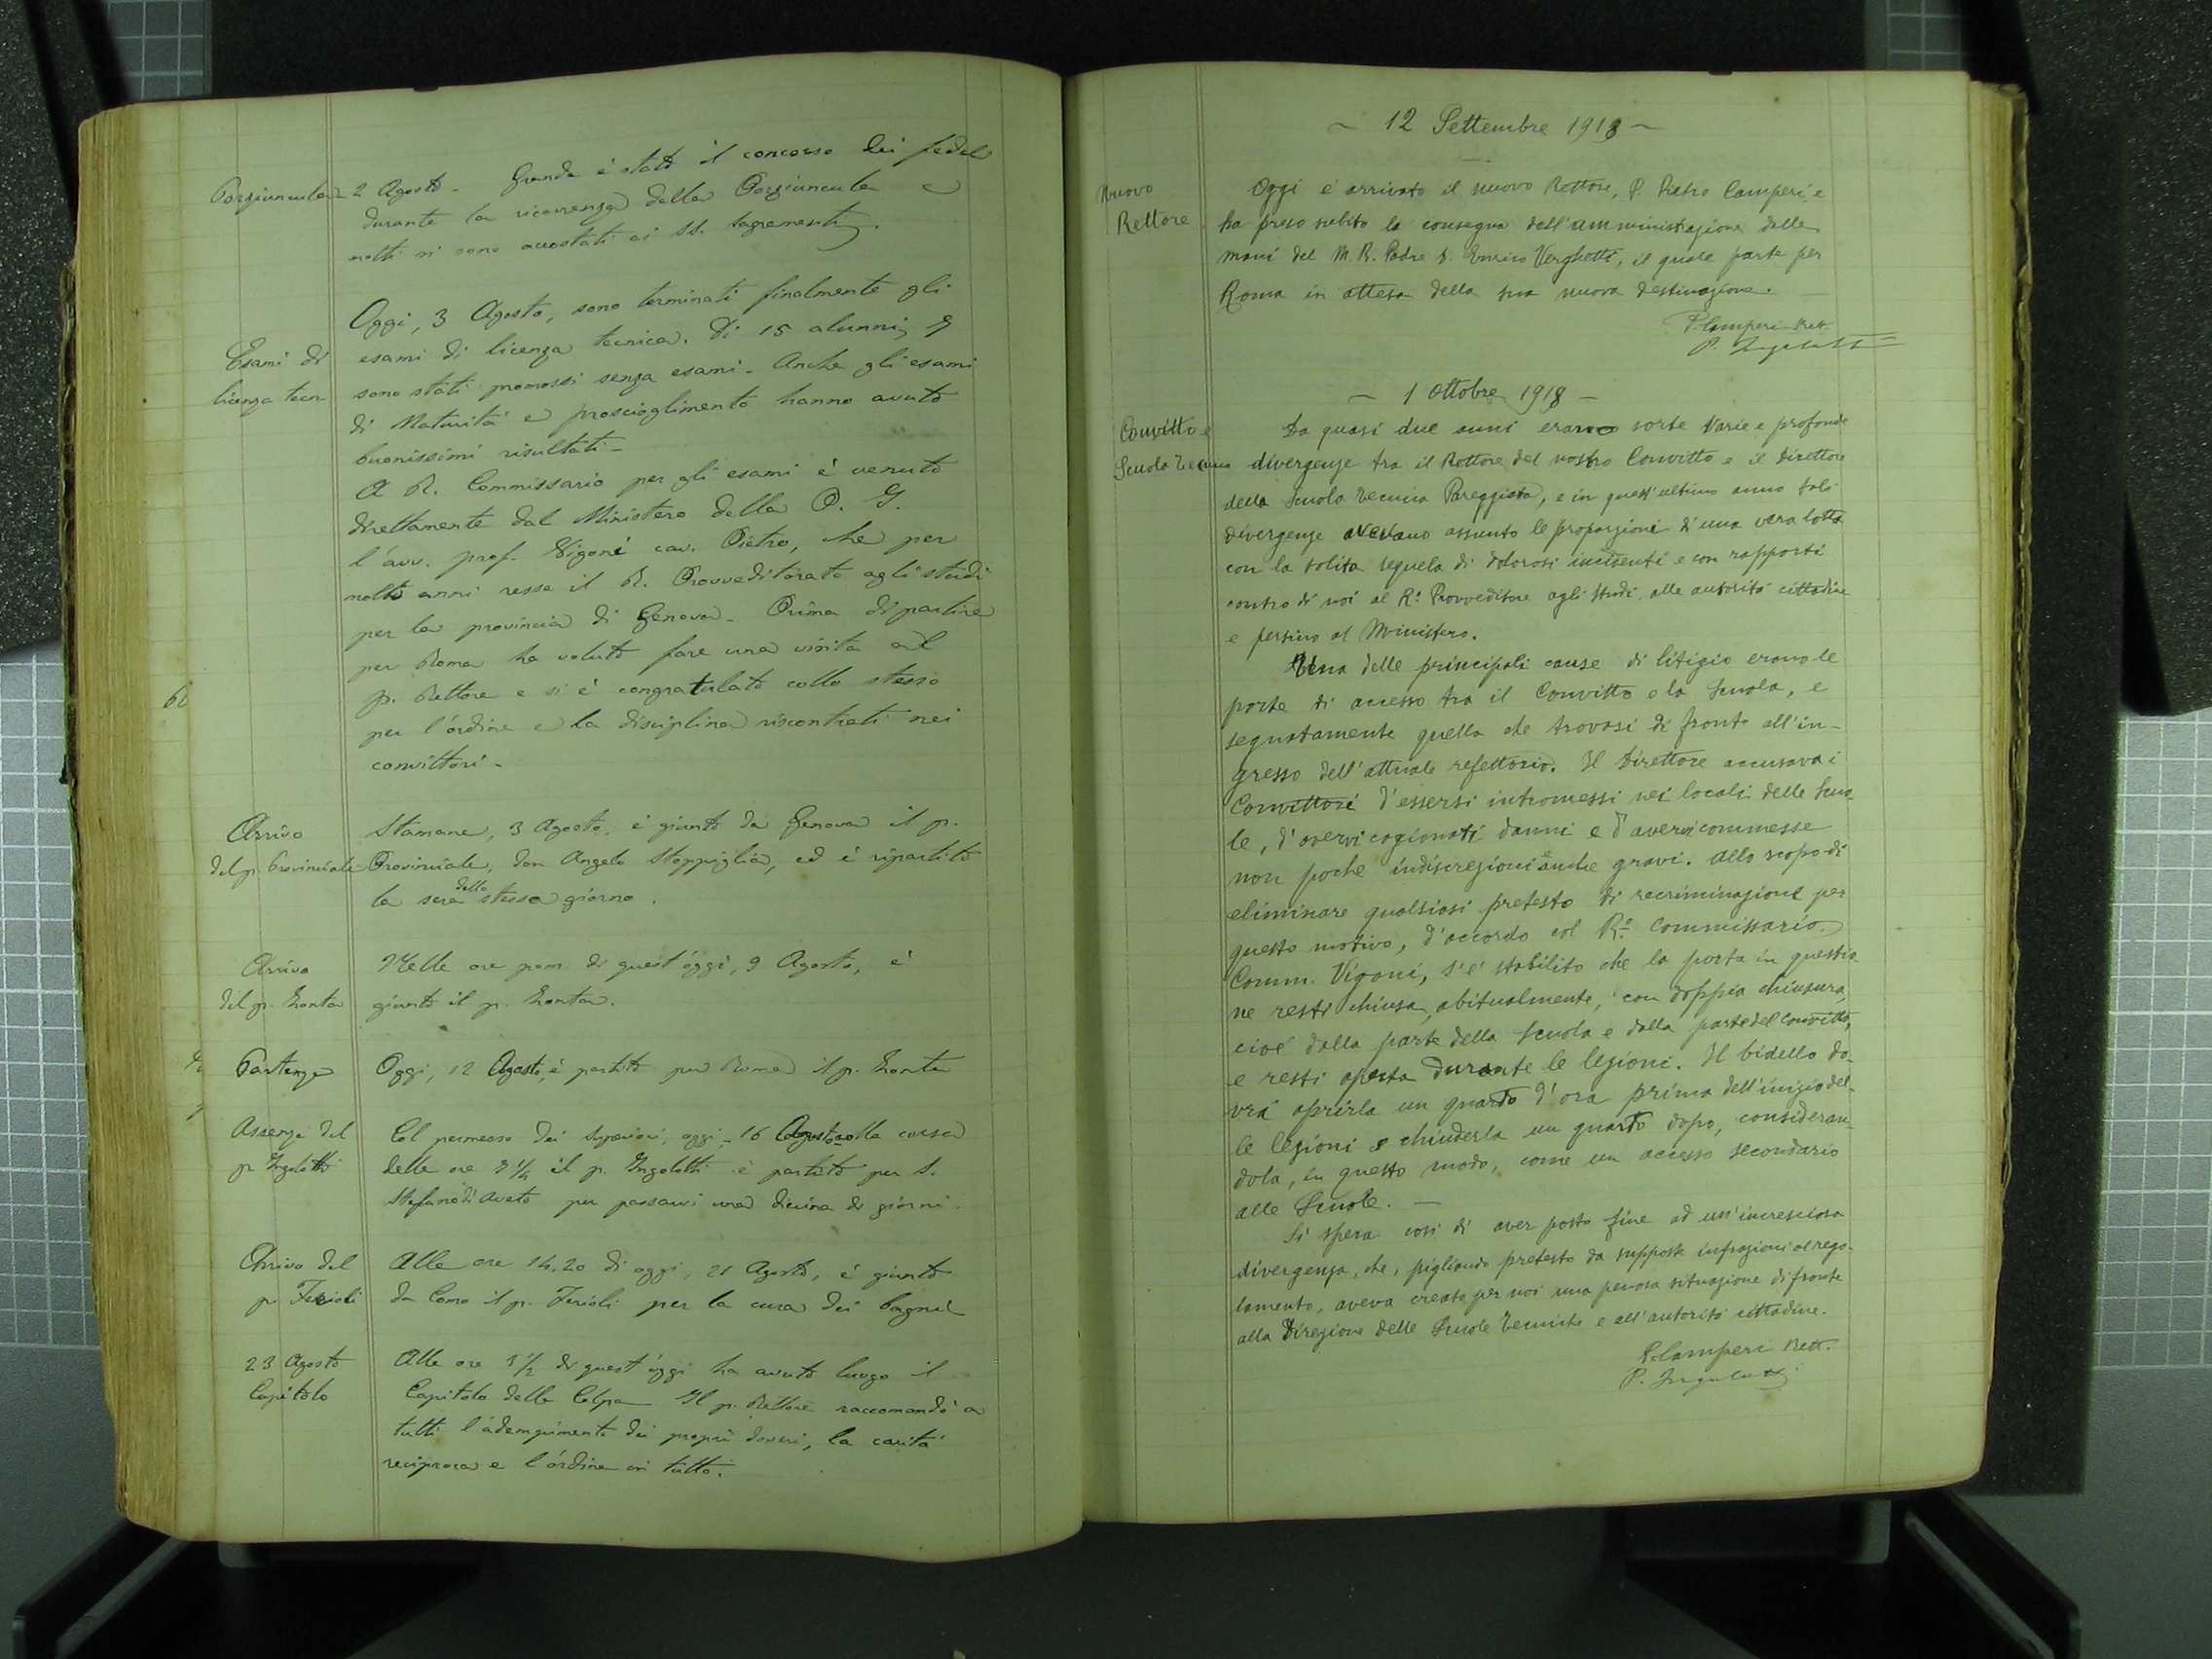 Porziuncula 2 Agosto - Grande è stato il concorso dei fedeli
durante la ricorrenza della Porziuncula e
molti si sono accostati ai SS. Sagramenti.
Esami di
licenza tecn
Oggi, 3 Agosto, sono terminati finalmente gli
esami di licenza tecnica. Di 15 alunni, 9
sono stati promossi senza esami. Anche gli esami
di Maturità e proscioglimento hanno avuto
buonissimi risultati -
A R. Commissario per gli esami è venuto
direttamente dal Ministero della P. I.
l'avv. prof. Vigoni cav. Pietro, che per
molti anni resse il R. Provveditorato agli studi
per la provincia di Genova - Prima di partire
per Roma ha voluto fare una visita al
p. Rettore e si è congratulato collo stesso
per l'ordine e la disciplina riscontrati nei
convittori -
Arrivo
del p. Provinciale
Stamane, 3 Agosto, è giunto da Genova il p.
Provinciale, don Angelo Stoppiglia, ed è ripartito
la sera dello stesso giorno.
Arrivo
del p. Zonta
Nelle ore pom di quest'oggi, 9 Agosto, è
giunto il p. Zonta.
Partenza
Oggi, 12 Agosto, è partito per Roma il p. Zonta
Assenza del
p. Ingolotti
Col permesso dei Superiori, oggi, 16 Agosto colla corsa
delle ore 9 1/4 il p. Ingolotti è partito per S.
Stefano di Aveto per passarvi una diecina di giorni.
Arrivo del
p. Ferioli
Alle ore 14.20 di oggi, 21 Agosto, è giunto
da Como il p. Ferioli per la cura dei bagni
23 Agosto
Capitolo
Alle ore 9 1/2 di quest'oggi ha avuto luogo il
Capitolo delle Colpe Il p. Rettore raccomandò a
tutti l'adempimento dei propri doveri, la carità
reciproca e l'ordine in tutto.
~ 12 Settembre 1918 ~
Nuovo
Rettore
Oggi è arrivato il nuovo Rettore, P. Pietro Camperi, e
ha preso subito la consegna dell'amministrazione dalle
mani del M. R. Padre D. Enrico Verghetti, il quale parte per
Roma in attesa della sua nuova destinazione.
P. Camperi Rett.
P. Ingolotti
~ 1 Ottobre 1918 -
Convitto e
Scuola Tecnica
Da quasi due anni erano sorte varie e profonde
divergenze tra il Rettore del nostro Convitto e il Direttore
della Scuola Tecnica Pareggiata, e in quest'ultimo anno tali
divergenze avevano assunto le proporzioni di una vera lotta
con la solita sequela di dolorosi incidenti e con rapporti
contro di noi al R.° Provveditore agli studi, alle autorità cittadine
e persino al Ministero.
Una delle principali cause di litigio erano le
porte di accesso tra il Convitto e la Scuola, e
segnatamente quella che trovasi di fronte all'in-
gresso dell'attuale refettorio. Il Direttore accusava i
Convittori d'essersi intromessi nei locali delle Scuo-
le, d'avervi cagionati danni e d'avervi commesse
non poche indiscrezioni e anche gravi. Allo scopo di
eliminare qualsiasi pretesto di recriminazione per
questo motivo, d'accordo col R.° Commissario
Comm. Vigoni, s'e' stabilito che la porta in questio-
ne resti chiusa, abitualmente, con doppia chiusura,
cioè dalla parte della Scuola e dalla parte del Convitto,
e resti aperta durante le lezioni. Il bidello do-
vrà aprirla un quarto d'ora prima dell'inizio del-
le lezioni e chiuderla un quarto dopo, consideran-
dola, in questo modo, come un accesso secondario
alle Scuole. —
Si spera così di aver posto fine ad un'incresciosa
divergenza, che, pigliando pretesto da supposte infrazioni al rego-
lamento, aveva creato per noi una penosa situazione di fronte
alla Direzione delle Scuole Tecniche e all'autorità cittadine.
P. Camperi Rett.
P. Ingolotti